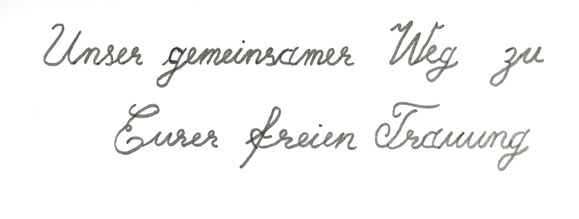 Unser gemeinsamer Weg zu
Eurer freien Trauung